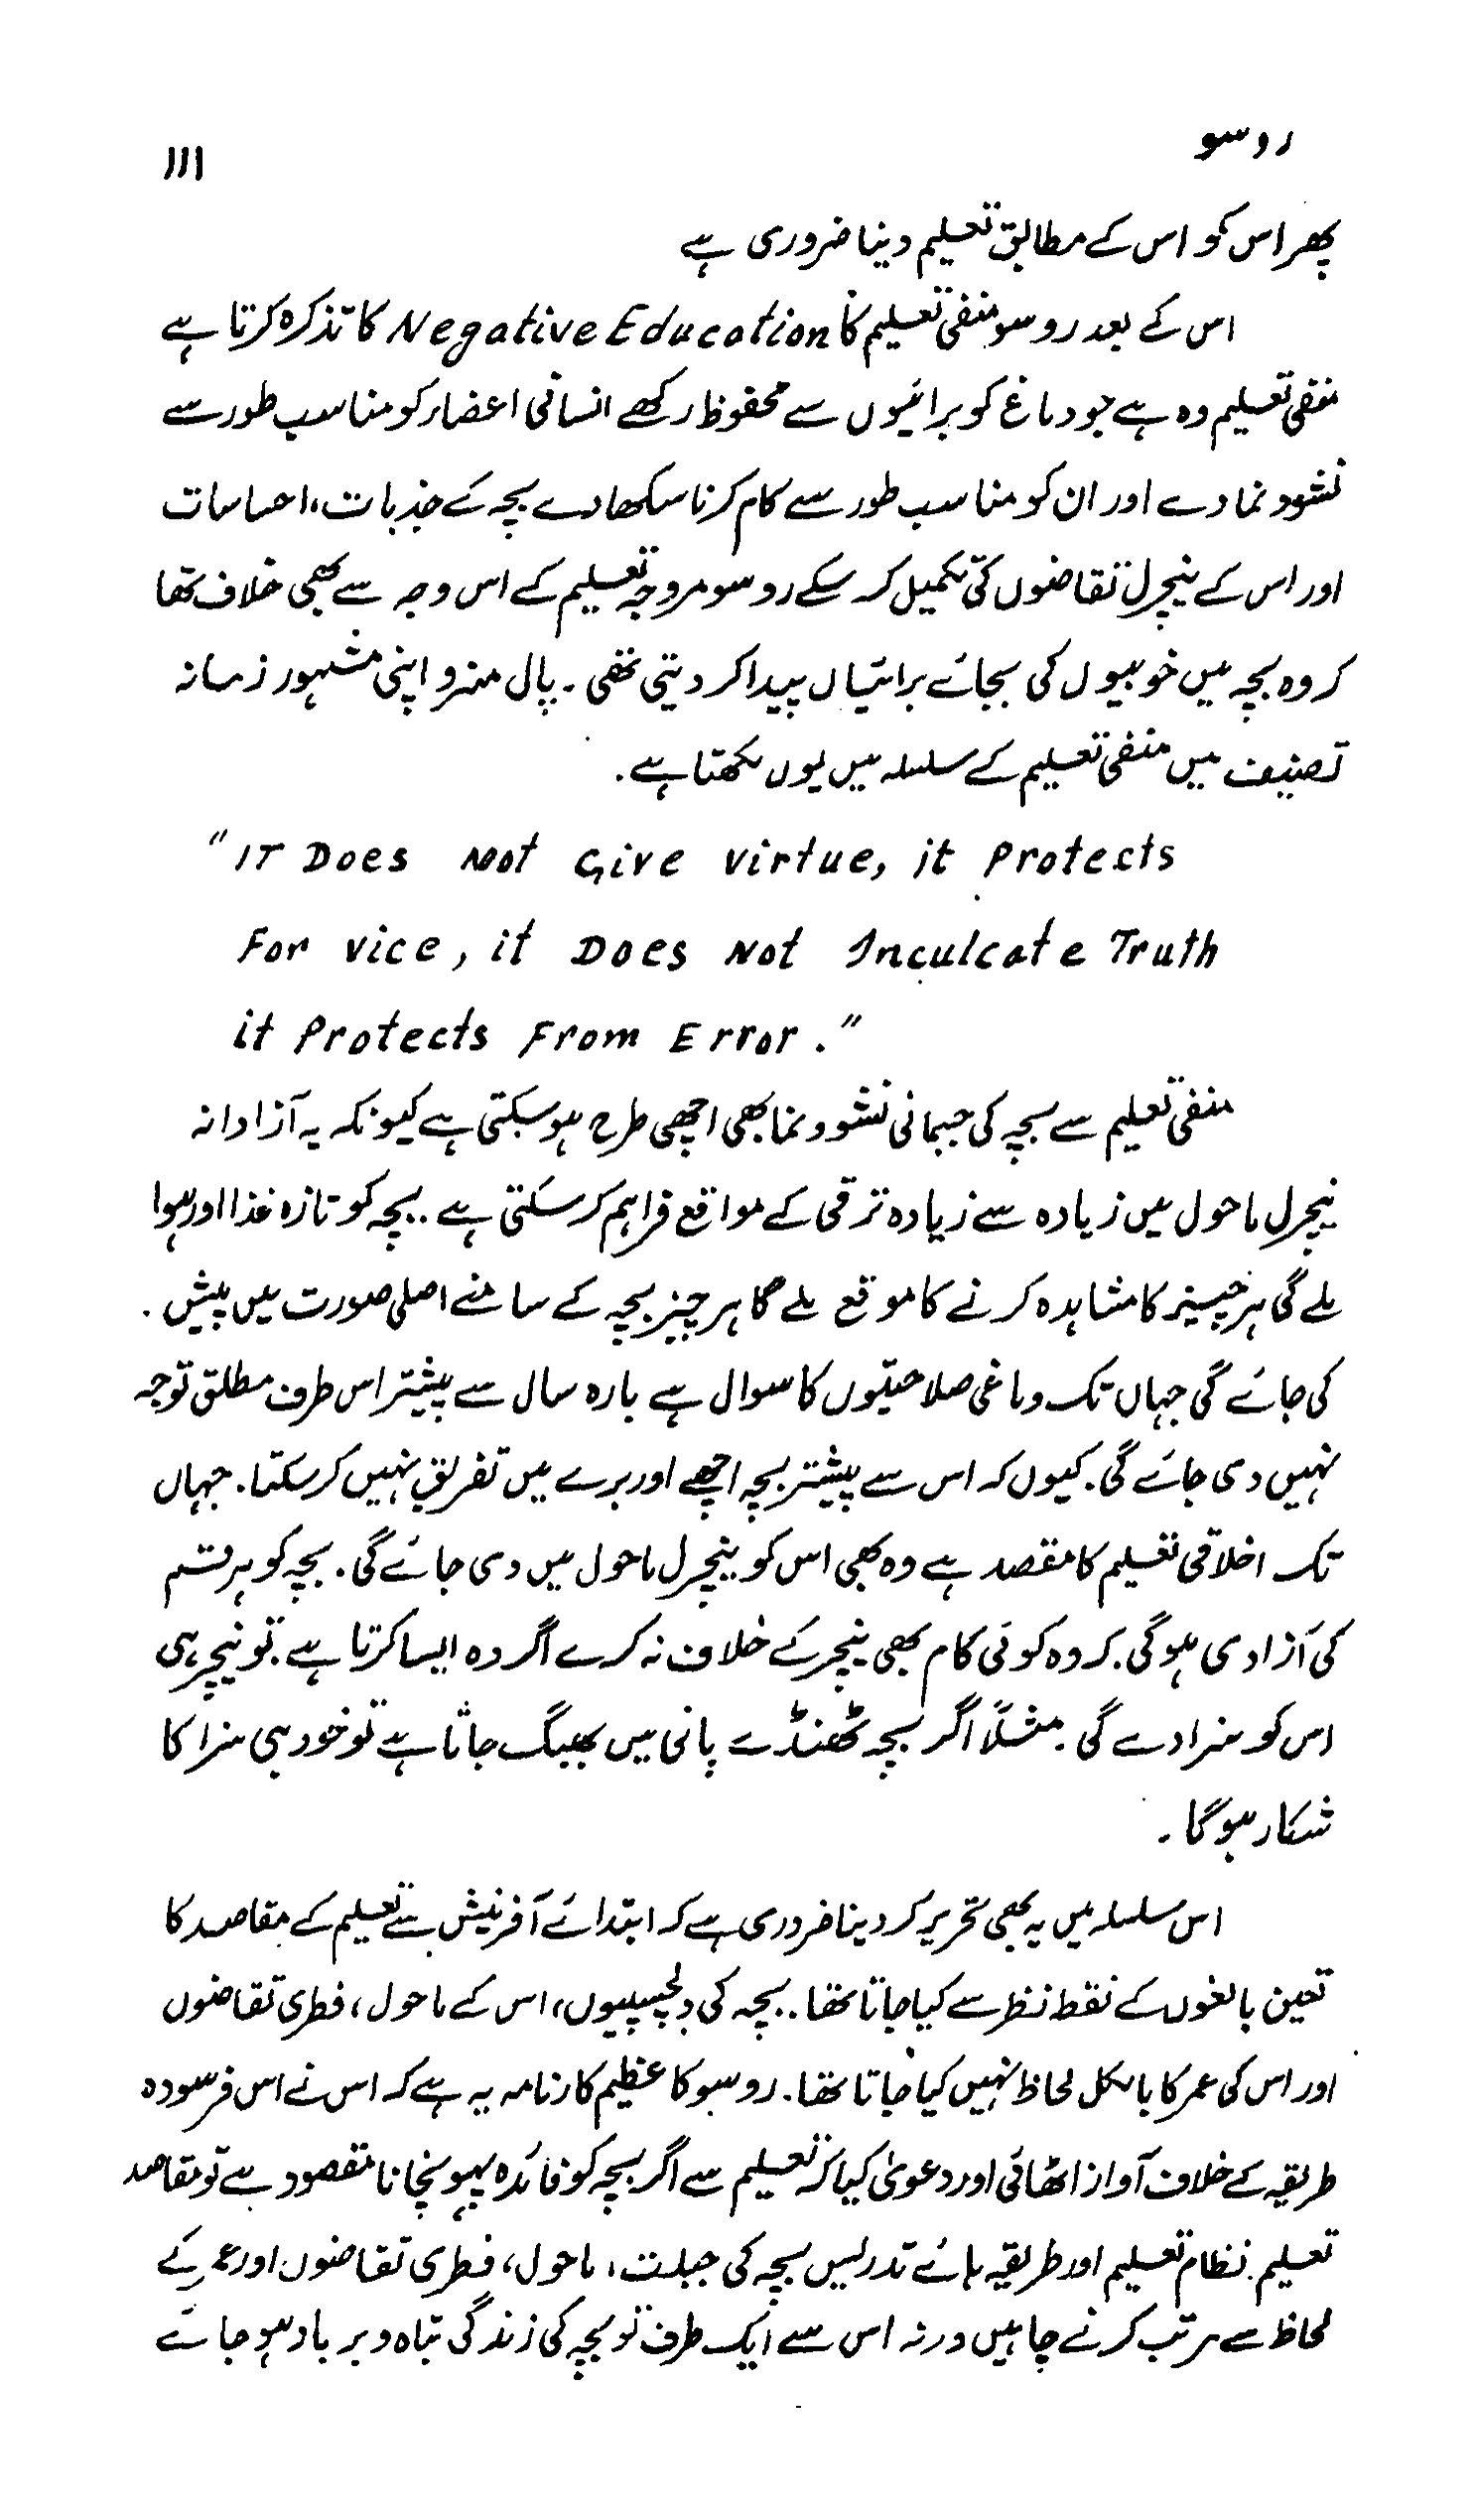 روسو ۱۱۱
پھر اس کو اس کے مطابق تعلیم دینا ضروری ہے
اس کے بعد روسو منفی تعلیم کا Negative Education کا تذکرہ کرتا ہے
منفی تعلیم وہ ہے جو دماغ کو برائیوں سے محفوظ رکھے انسانی اعضاء کو مناسب طور سے
نشوونما دے اور ان کو مناسب طور سے کام کرنا سکھا دے بچہ کے جذبات، احساسات
اور اس کے نیچرل تقاضوں کی تکمیل کر سکے روسو مروجہ تعلیم کے اس وجہ سے بھی خلاف تھا
کہ وہ بچہ میں خوبیوں کی بجائے برائیاں پیدا کر دیتی تھی۔ پال منرو اپنی مشہور زمانہ
تصنیف میں منفی تعلیم کے سلسلہ میں یوں لکھتا ہے۔
"IT Does Not Give virtue, it Protects
For vice, it Does Not Inculcate Truth
it Protects From Error."
منفی تعلیم سے بچہ کی جسمانی نشوونما بھی اچھی طرح ہو سکتی ہے کیونکہ یہ آزادانہ
نیچرل ماحول میں زیادہ سے زیادہ ترقی کے مواقع فراہم کر سکتی ہے۔ بچہ کو تازہ غذا اور ہوا
ملے گی ہر چیز کا مشاہدہ کرنے کا موقع ملے گا ہر چیز بچہ کے سامنے اصلی صورت میں پیش۔
کی جائے گی جہاں تک دماغی صلاحیتوں کا سوال ہے بارہ سال سے پیشتر اس طرف مطلق توجہ
نہیں دی جائے گی۔ کیوں کہ اس سے پیشتر بچہ اچھے اور برے میں تفریق نہیں کر سکتا۔ جہاں
تک اخلاقی تعلیم کا مقصد ہے وہ بھی اس کو نیچرل ماحول میں دی جائے گی۔ بچہ کو ہر قسم
کی آزادی ہوگی۔ کہ وہ کوئی کام بھی نیچر کے خلاف نہ کرے اگر وہ ایسا کرتا ہے تو نیچر ہی
اس کو سزا دے گی۔ مثلاً اگر بچہ ٹھنڈے پانی میں بھیگ جاتا ہے تو خود ہی سزا کا
شکار ہوگا۔
اس سلسلہ میں یہ بھی تحریر کر دینا ضروری ہے کہ ابتدائے آفرینش سے تعلیم کے مقاصد کا
تعین بالغوں کے نقط نظر سے کیا جاتا تھا۔ بچہ کی دلچسپیوں، اس کے ماحول، فطری تقاضوں
اور اس کی عمر کا بالکل لحاظ نہیں کیا جاتا تھا۔ روسو کا عظیم کارنامہ یہ ہے کہ اس نے اس فرسودہ
طریقہ کے خلاف آواز اٹھائی اور دعویٰ کیا کہ تعلیم سے اگر بچہ کو فائدہ پہونچانا مقصود ہے تو مقاصد
تعلیم۔ نظام تعلیم اور طریقہ ہائے تدریس بچہ کی جبلت، ماحول، فطری تقاضوں اور عمر کے
لحاظ سے مرتب کرنے چاہیں ورنہ اس سے ایک طرف تو بچہ کی زندگی تباہ و برباد ہو جائے